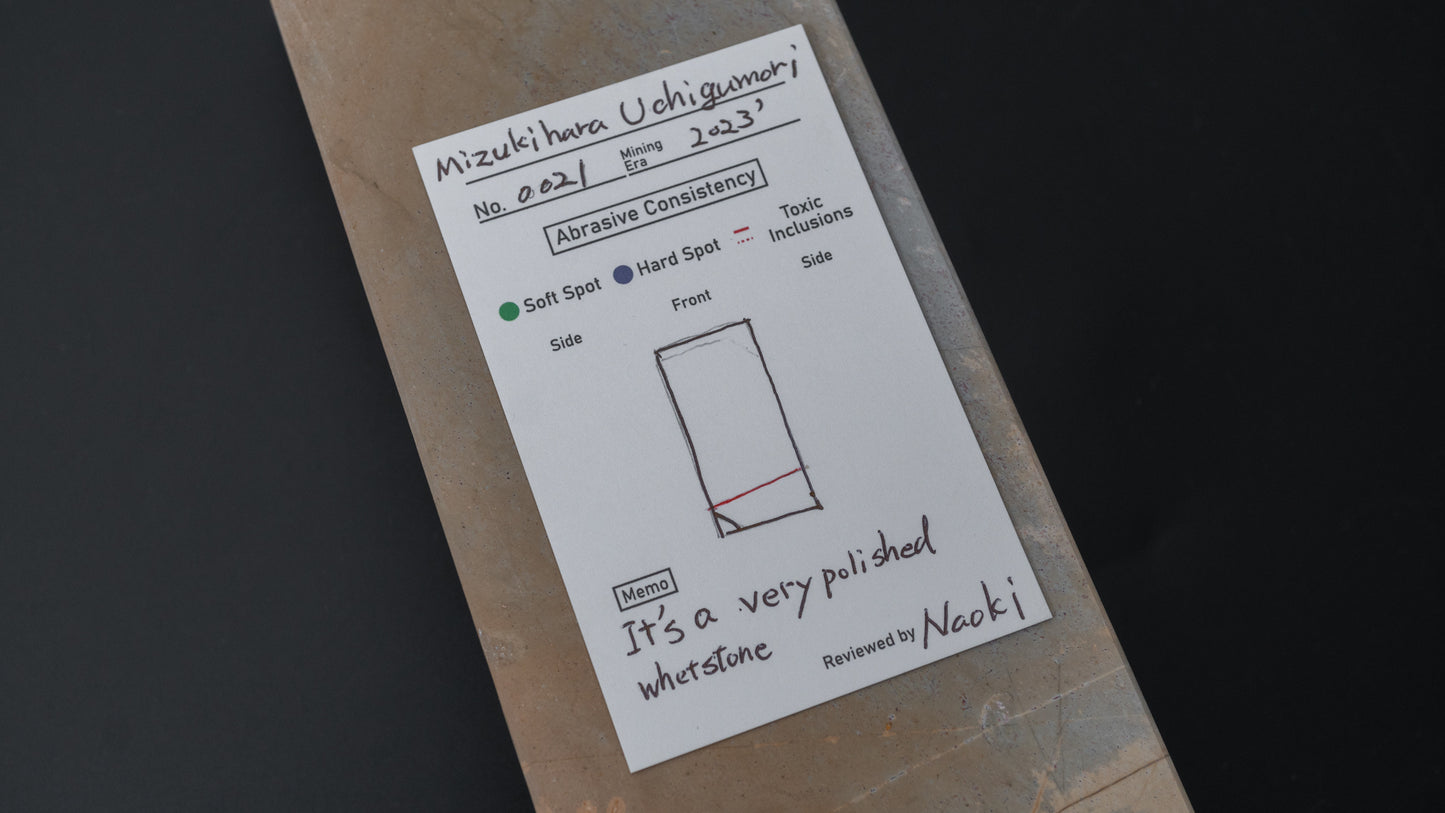 Mizukihara Uchigumori
No. 0021 Mining Era 2023'
Abrasive Consistency
Soft Spot Hard Spot Toxic Inclusions
Side Front Side
Memo
It's a very polished
whetstone
Reviewed by Naoki